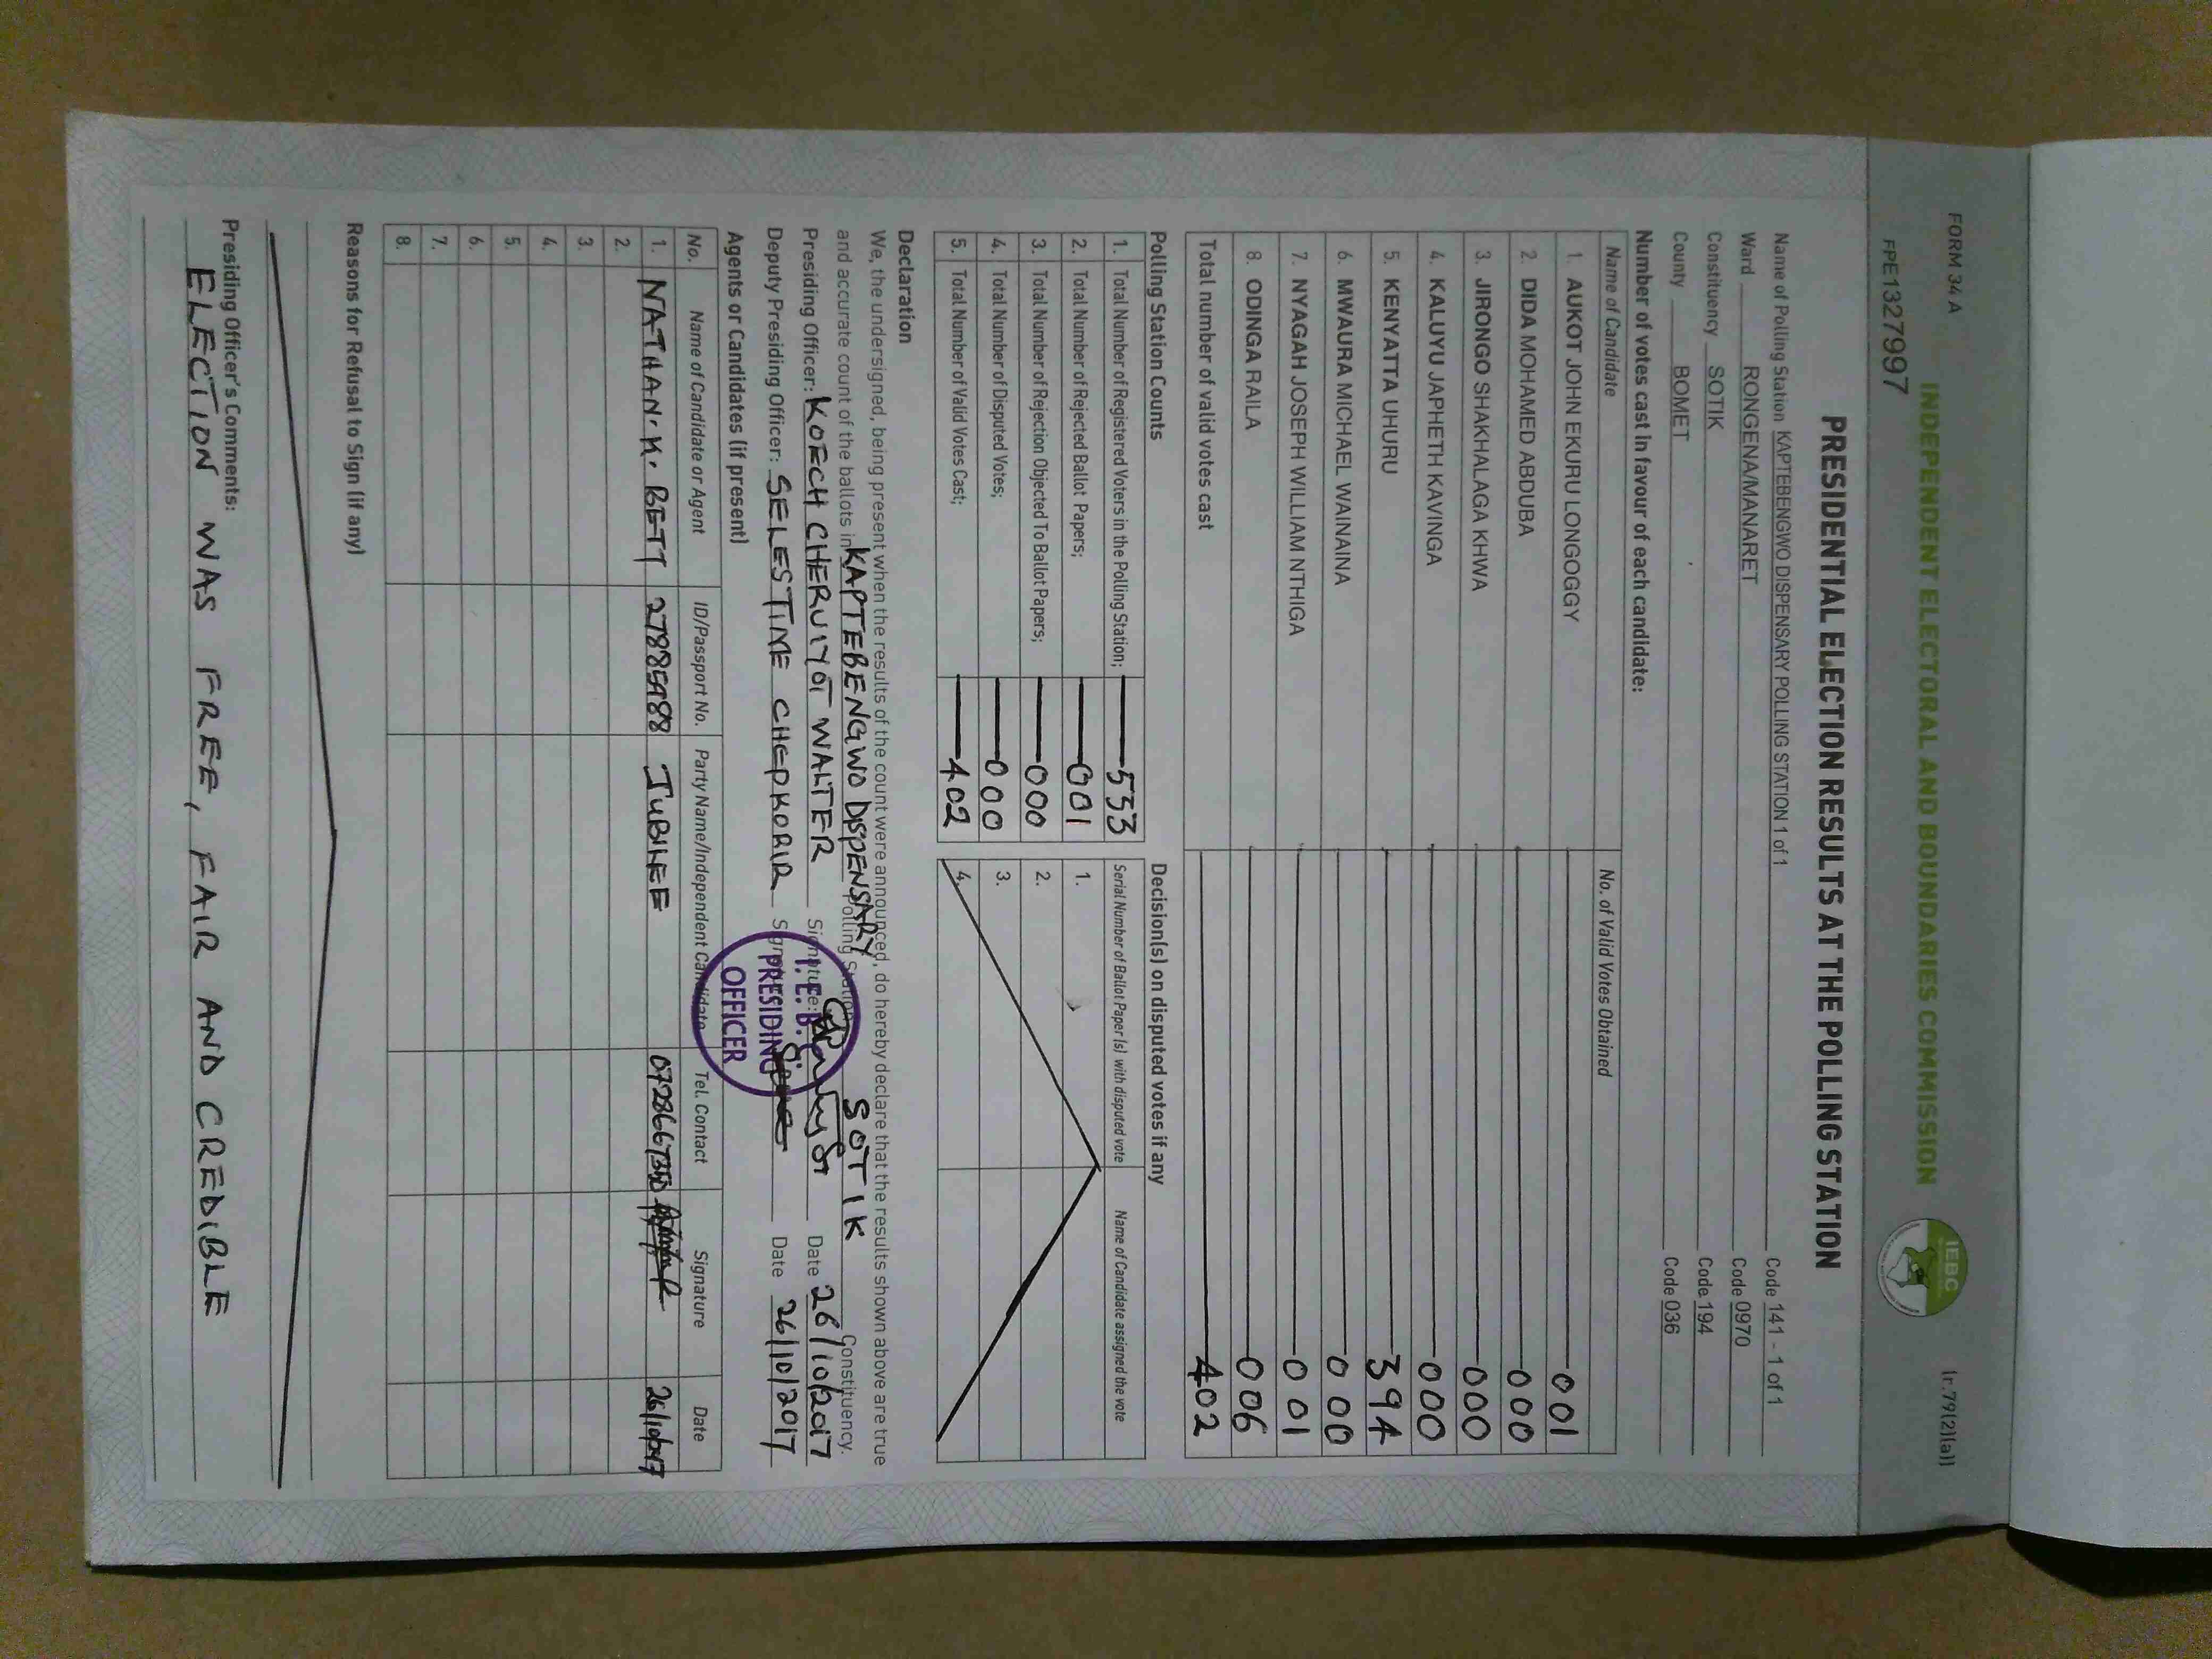 FORM 34 A
(r.79(2)(a))
INDEPENDENT ELECTORAL AND BOUNDARIES COMMISSION
IEBC
FPE1327997
PRESIDENTIAL ELECTION RESULTS AT THE POLLING STATION
Name of Polling Station KAPTEBENGWO DISPENSARY POLLING STATION 1 of 1 Code 141 - 1 of 1
Ward RONGENA/MANARET Code 0970
Constituency SOTIK Code 194
County BOMET Code 036
Number of votes cast in favour of each candidate:
Name of Candidate No. of Valid Votes Obtained
1. AUKOT JOHN EKURU LONGOGGY 001
2. DIDA MOHAMED ABDUBA 000
3. JIRONGO SHAKHALAGA KHWA 000
4. KALUYU JAPHETH KAVINGA 000
5. KENYATTA UHURU 394
6. MWAURA MICHAEL WAINAINA 000
7. NYAGAH JOSEPH WILLIAM NTHIGA 001
8. ODINGA RAILA 006
Total number of valid votes cast 402
Polling Station Counts
1. Total Number of Registered Voters in the Polling Station; 533
2. Total Number of Rejected Ballot Papers; 001
3. Total Number of Rejection Objected To Ballot Papers; 000
4. Total Number of Disputed Votes; 000
5. Total Number of Valid Votes Cast; 402
Decision(s) on disputed votes if any
Serial Number of Ballot Paper (s) with disputed vote Name of Candidate assigned the vote
1.
2.
3.
4.
Declaration
We, the undersigned, being present when the results of the count were announced, do hereby declare that the results shown above are true
and accurate count of the ballots in KAPTEBENGWO DISPENSARY Polling Station SOTIK Constituency.
Presiding Officer: KOECH CHERUIYOT WALTER Signature: Date 26/10/2017
Deputy Presiding Officer: SELESTINE CHEPKORIR Signature: Date 26/10/2017
I.E.B.C.
PRESIDING
OFFICER
Agents or Candidates (if present)
No. Name of Candidate or Agent ID/Passport No. Party Name/Independent Candidate Tel. Contact Signature Date
1. NATHAN. K. BETT 27885988 JUBILEE 26/10/2017
2.
3.
4.
5.
6.
7.
8.
Reasons for Refusal to Sign (if any)
Presiding Officer's Comments:
ELECTION WAS FREE, FAIR AND CREDIBLE